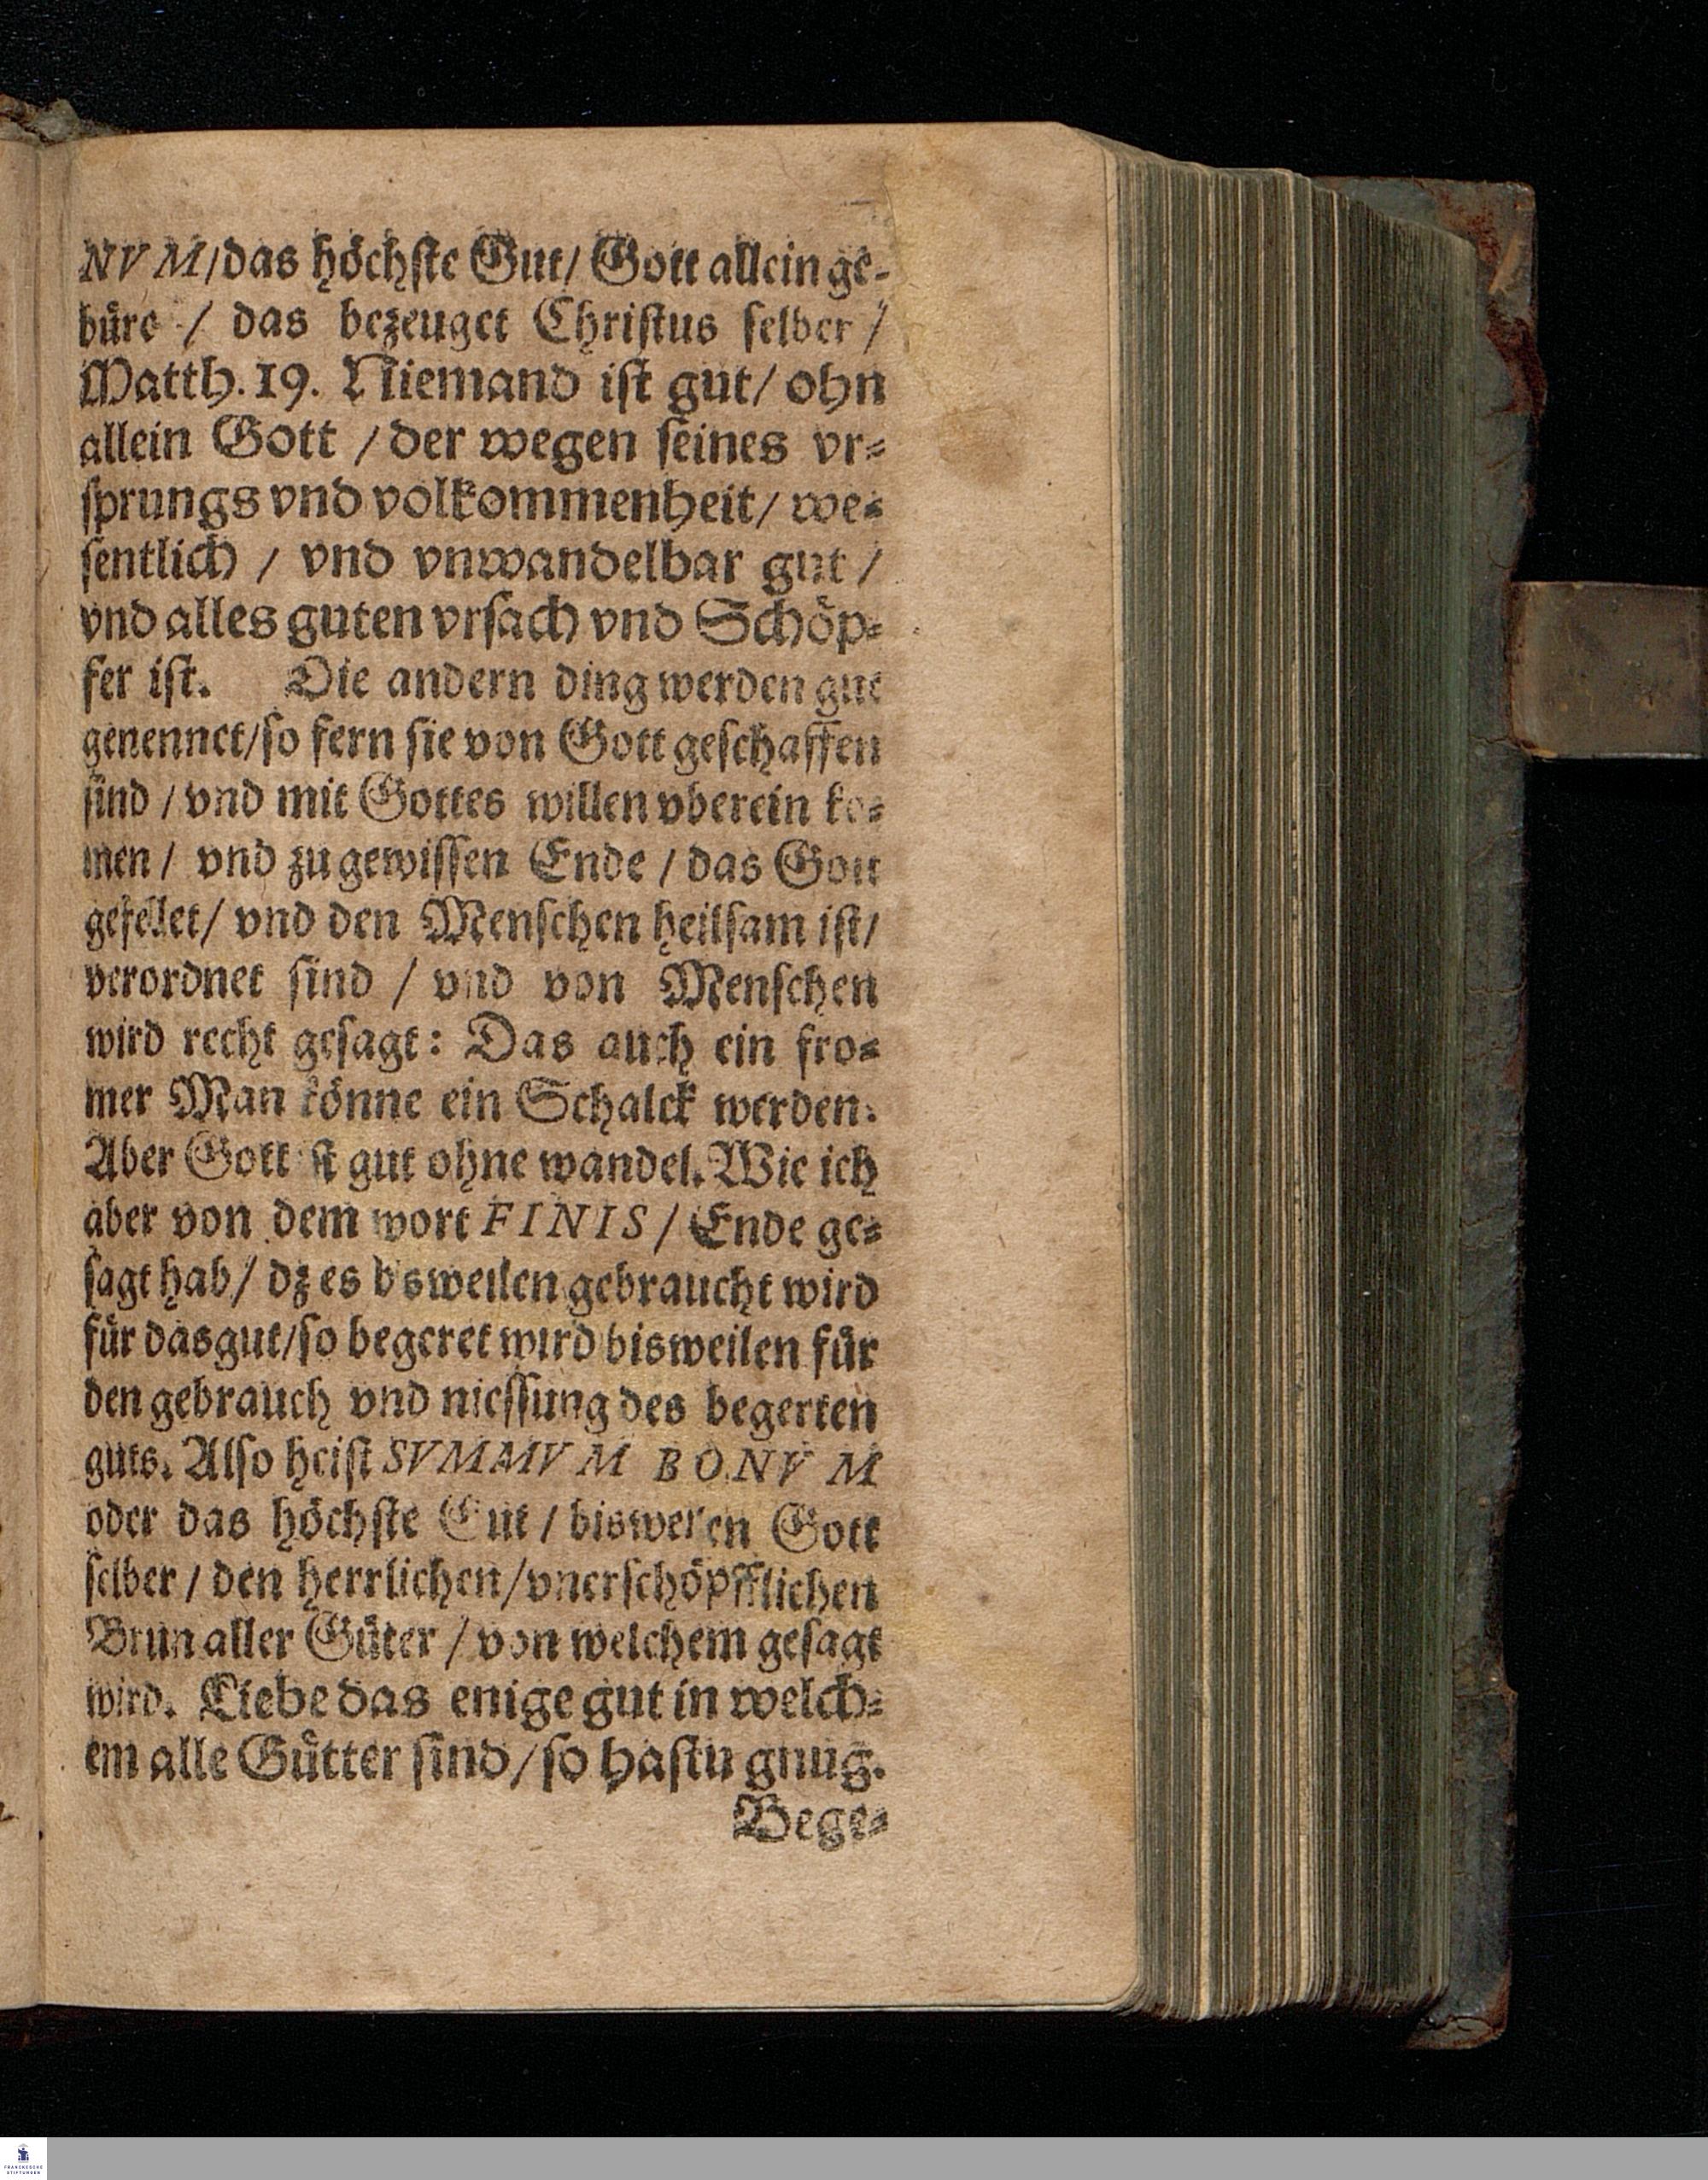 NVM/das höchste Gut/ Gott allein ge-
büre / das bezeuget Christus selber /
Matth. 19. Niemand ist gut/ ohn
allein Gott / der wegen seines vr-
sprungs vnd volkommenheit/ we-
sentlich / vnd vnwandelbar gut /
vnd alles guten vrsach vnd Schöp-
fer ist. Die andern ding werden gut
genennet/so fern sie von Gott geschaffen
sind / vnd mit Gottes willen vberein ko-
men / vnd zu gewissen Ende / das Gott
gefellet/ vnd den Menschen heilsam ist/
verordnet sind / vnd von Menschen
wird recht gesagt: Das auch ein fro-
mer Man könne ein Schalck werden.
Aber Gott ist gut ohne wandel. Wie ich
aber von dem wort FINIS / Ende ge-
sagt hab/ dz es bisweilen gebraucht wird
für das gut/so begeret wird bisweilen für
den gebrauch vnd niessung des begerten
guts. Also heist SVMMVM BONVM
oder das höchste Gut / bisweilen Gott
selber / den herrlichen/vnerschöpfflichen
Brun aller Güter / von welchem gesagt
wird. Liebe das enige gut in welch-
em alle Gütter sind/so hastu gnug.
Bege-
FRANCKESCHE
STIFTUNGEN